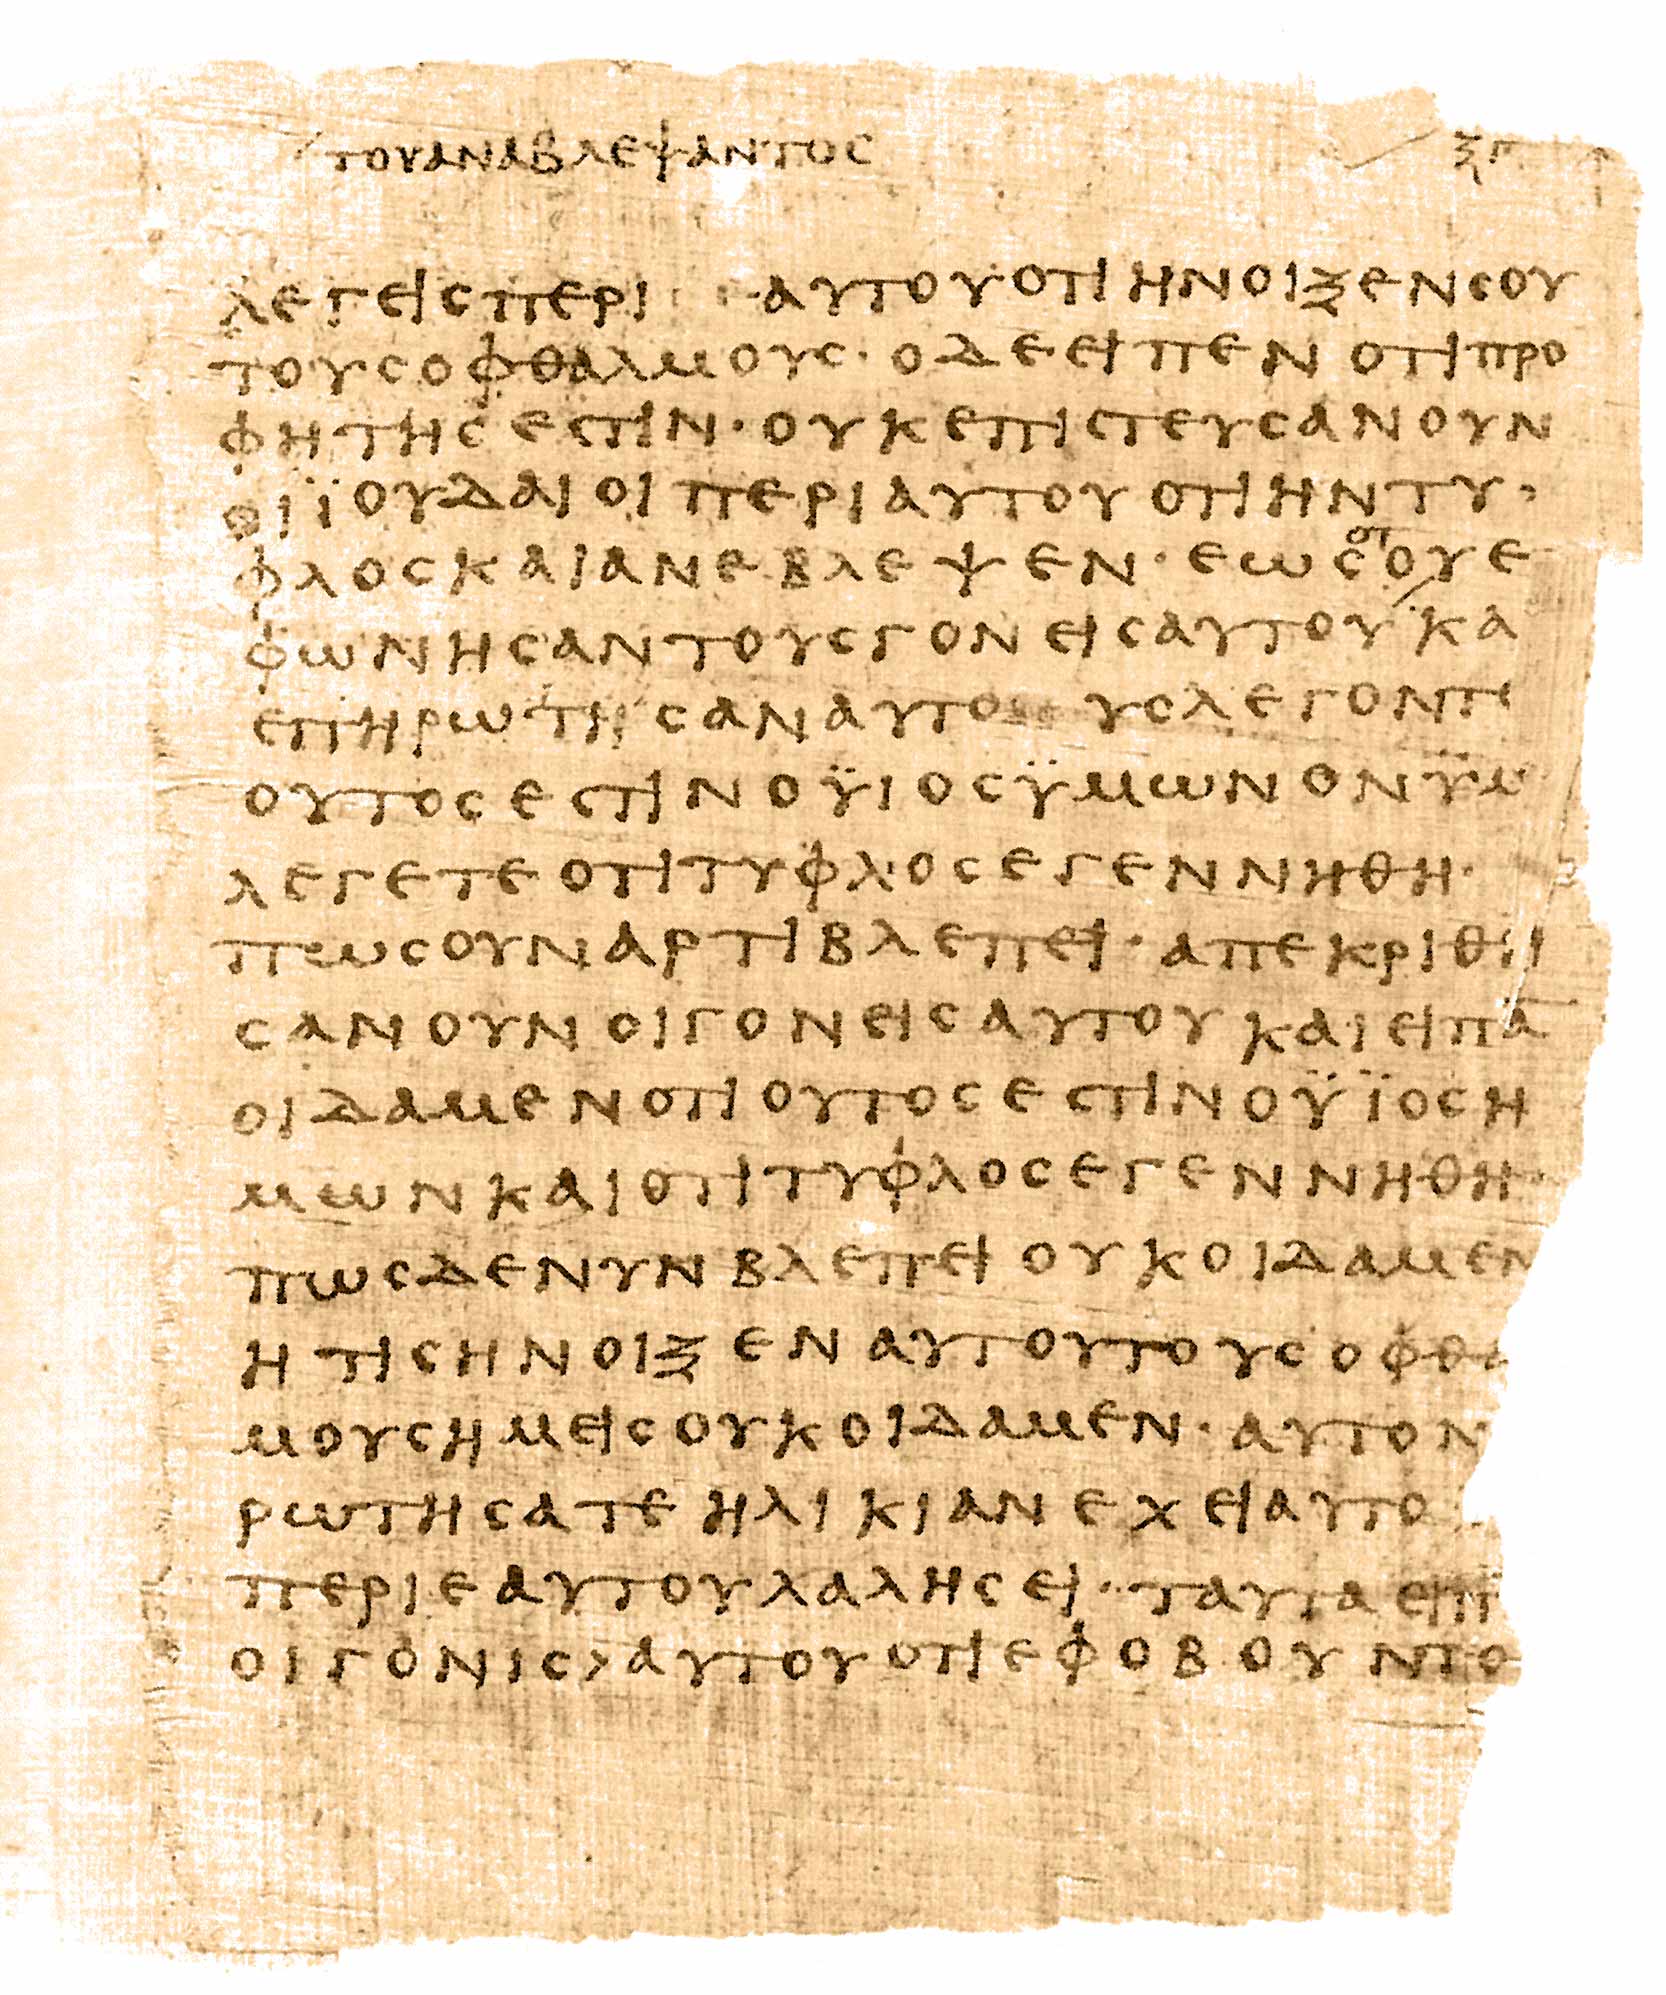 ΤΟΥΑΝΑΒΛΕΨΑΝΤΟϹ ΞΠ
ΛΕΓΕΙϹΠΕΡΙ ΑΥΤΟΥΟΤΙΗΝΟΙΞΕΝϹΟΥ
ΤΟΥϹΟΦΘΑΛΜΟΥϹ· ΟΔΕΕΙΠΕΝ ΟΤΙΠΡΟ
ΦΗΤΗϹΕϹΤΙΝ· ΟΥΚΕΠΙϹΤΕΥϹΑΝΟΥΝ
ΟΙΪΟΥΔΑΙΟΙΠΕΡΙΑΥΤΟΥΟΤΙΗΝΤΥ·
ΦΛΟϹΚΑΙΑΝΕΒΛΕΨΕΝ· ΕΩϹ`ΟΤ´ΟΥΕ
ΦΩΝΗϹΑΝΤΟΥϹΓΟΝΕΙϹΑΥΤΟΥ ΚΑ
ΕΠΗΡΩΤΗϹΑΝΑΥΤΟ ΥϹΛΕΓΟΝΤΕ
ΟΥΤΟϹΕϹΤΙΝΟΫΙΟϹΫΜΩΝΟΝΫΜ
ΛΕΓΕΤΕΟΤΙΤΥΦΛΟϹΕΓΕΝΝΗΘΗ·
ΠΩϹΟΥΝΑΡΤΙΒΛΕΠΕΙ· ΑΠΕΚΡΙΘΗ
ϹΑΝΟΥΝΟΙΓΟΝΕΙϹΑΥΤΟΥΚΑΙΕΙΠΑ̅
ΟΙΔΑΜΕΝΟΤΙΟΥΤΟϹΕϹΤΙΝΟΫΪΟϹΗ
ΜΩΝΚΑΙΟΤΙΤΥΦΛΟϹΕΓΕΝΝΗΘΗ·
ΠΩϹΔΕΝΥΝΒΛΕΠΕΙΟΥΚΟΙΔΑΜΕΝ
ΗΤΙϹΗΝΟΙΞΕΝΑΥΤΟΥΤΟΥϹΟΦΘΑ
ΜΟΥϹΗΜΕΙϹΟΥΚΟΙΔΑΜΕΝ· ΑΥΤΟΝ
ΡΩΤΗϹΑΤΕΗΛΙΚΙΑΝΕΧΕΙΑΥΤΟ
ΠΕΡΙΕΑΥΤΟΥΛΑΛΗϹΕΙ· ΤΑΥΤΑΕΙΠ
ΟΙΓΟΝΙϹ>ΑΥΤΟΥΟΤΙΕΦΟΒΟΥΝΤΟ